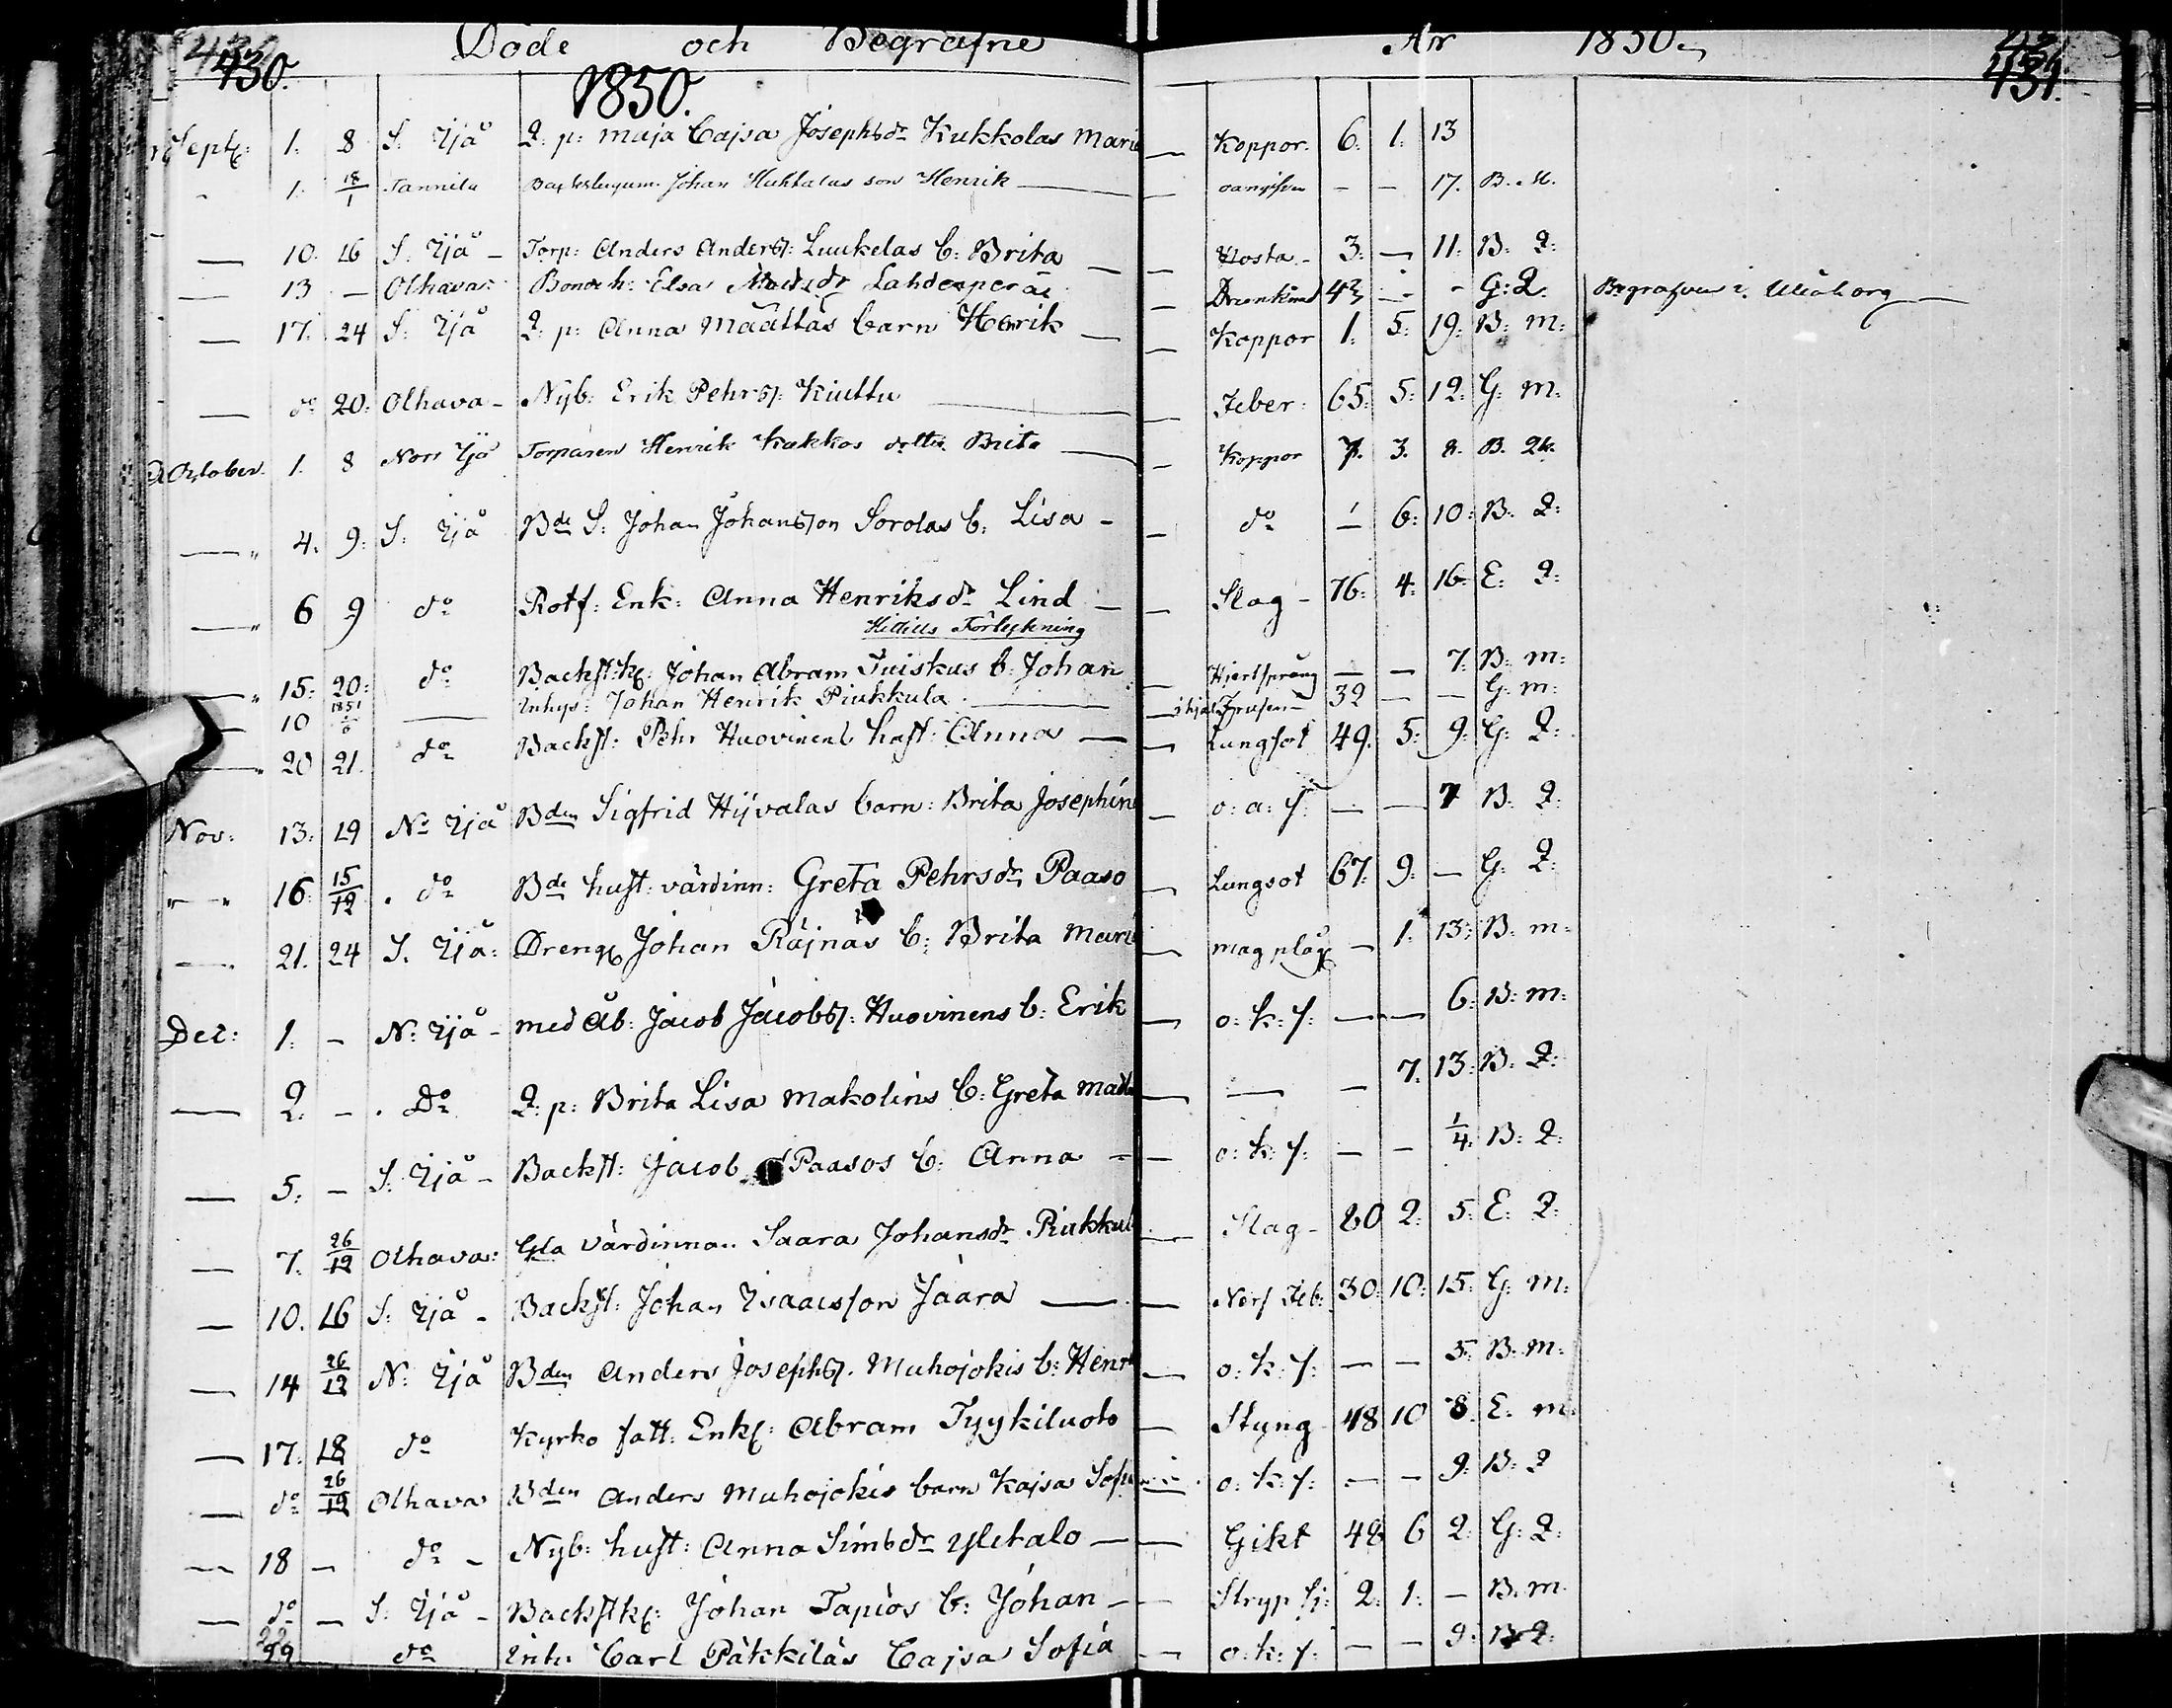 430. Döde och Begrafne År 1850. 431.
1850.
Sept: 1. 8 S. Ijå Q. p: Maja Cajsa Josephsdr Kukkolas Mari — Koppor. 6. 1. 13
" 1. 18/1 Tannila Johan Huhtalas son Henrik — oangifven — — 17. B. M.
— 10. 16 S. Ijå – Torp: Anders Anders: Luukelas b: Brita — Hosta – 3. — 11. B: Q:
— 13 — Olhava: Bonde h: Elsa Matsdr Lahdenperäi — Drunknad 42 — - G: Q. Begrafven i Uleåborg —
— 17. 24 S. Ijå Q: p: Anna Määttäs barn Henrik — Koppor 1. 5. 19. B: m:
— do 20. Olhava – Nyb: Erik Pehrs: Kiuttu — Feber: 65. 5. 12. G: m.
October. 1. 8 Norr Ijå Torparen Henrik Kukkos Brita — Koppor 7. 3. 8. B. Qk.
— " 4. 9. S: Ijå Bde S: Johan Johansson Sorolas b: Lisa – do — 6. 10. B. Q:
— " 6 9 do Rotf: Enk: Anna Henriksdr Lind — Slag – 76. 4. 16. E: Q:
— " 15. 20. do Backst:k: Johan Abram Tuiskus b: Johan Hjertsprång — — 7. B: m:
— 10 1851 — Inhys: Johan Henrik Piukkula — ihjel frusen – 32 — — G: m:
— " 20 21. do Backst: Pehr Huovinens hust: Anna — Lungsot 49. 5. 9. G: Q:
Nov: 13. 19 No Ijå Bden Sigfrid Hyvälas barn: Brita Josephin — o: a: s: — — 7 B. Q:
" — " 16. 15/12 . do Bde hust: värdinn: Greta Pehrsdr Paaso — Lungsot 67. 9. — G: Q:
— " 21. 24 S. Ijå: Dreng Johan Räjnäs b: Brita Mari — magplåg — 1. 13: B: m:
Dec: 1. – N: Ijå – med Åb: Jacob Jacobs: Huovinens b: Erik — o: k: s: — — 6: B: m:
— 2. – . Do Q: p: Brita Lisa Makolins b: Greta — — — 7. 13: B: Q:
— 5. – S: Ijå – Backst: Jacob Paasos b: Anna — o: k: s: — — 1/4. B: Q:
— 7. 26/12 Olhava: Gla värdinnan Saara Johansdr Piukkul — Slag – 80 2: 5. E. Q.
— 10. 16 S: Ijå – Backst: Johan Isaacsson Jaara — Nerf Feb: 30. 10. 15. G: m:
— 14 26/12 N: Ijå Bden Anders Josephs: Muhojokis b: Henr — o: k: s: — — 5. B: m:
— 17. 18 do Kyrko fatt: Enkl: Abram Tyykiluoto — Styng 48 10 8. E. m.
— do 26/12 Olhava Bden Anders Muhojokis barn Kajsa Sof — o: k: s: — — 9. B: Q
— 18 – do – Nyb: hust: Anna Simsdr Ylitalo — Gikt 48 6 2: G: Q:
— do — S: Ijå – Backstk: Johan Tapios b: Johan — Stryp sj: 2. 1. — B. m.
22 do Inh: Carl Päkkiläs Cajsa Sofia — o: k: s: — — 9. B Q.